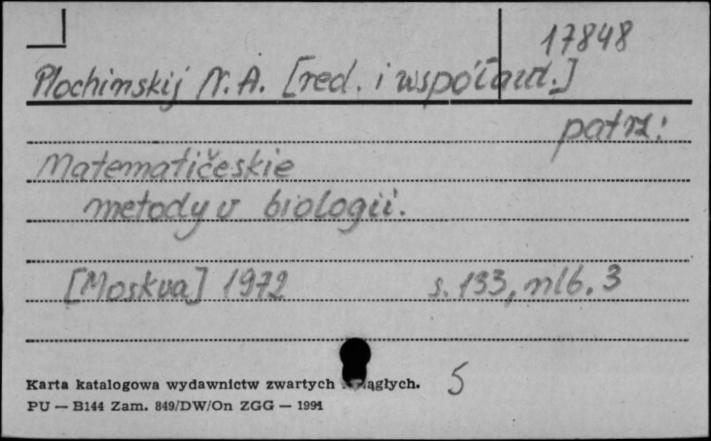 17848
Plochinskij N. A. [red. i współaut.]
patrz:
Matematičeskie
metody v biologii.
[Moskva] 1972 s. 133, nlb. 3
Karta katalogowa wydawnictw zwartych ciągłych. 5
PU — B144 Zam. 849/DW/On ZGG — 1991